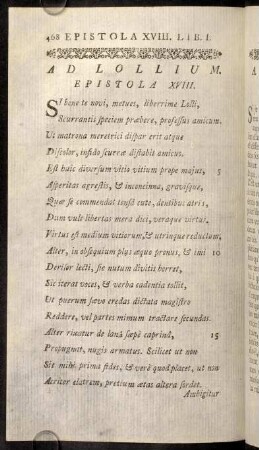 468 EPISTOLA XVIII. LIB. I.
AD LOLLIUM.
EPISTOLA XVIII.
SI bene te novi, metues, liberrime Lolli,
Scurrantis speciem præbere, professus amicum.
Ut matrona meretrici dispar erit atque
Discolor, infido scurræ distabit amicus.
Est huic diversum vitio vitium prope majus, 5
Asperitas agrestis, & inconcinna, gravisque,
Quæ se commendat tonsâ cute, dentibus atris,
Dum vult libertas mera dici, veraque virtus.
Virtus est medium vitiorum, & utrinque reductum,
Alter, in obsequium plus æquo pronus, & imi 10
Derisor lecti, sic nutum divitis horret,
Sic iterat voces, & verba cadentia tollit,
Ut puerum sævo credas dictata magistro
Reddere, vel partes mimum tractare secundas.
Alter rixatur de lanâ sæpè caprinâ, 15
Propugnat, nugis armatus. Scilicet ut non
Sit mihi prima fides, & verè quod placet, ut non
Acriter elatrem, pretium ætas altera sordet.
Ambigitur